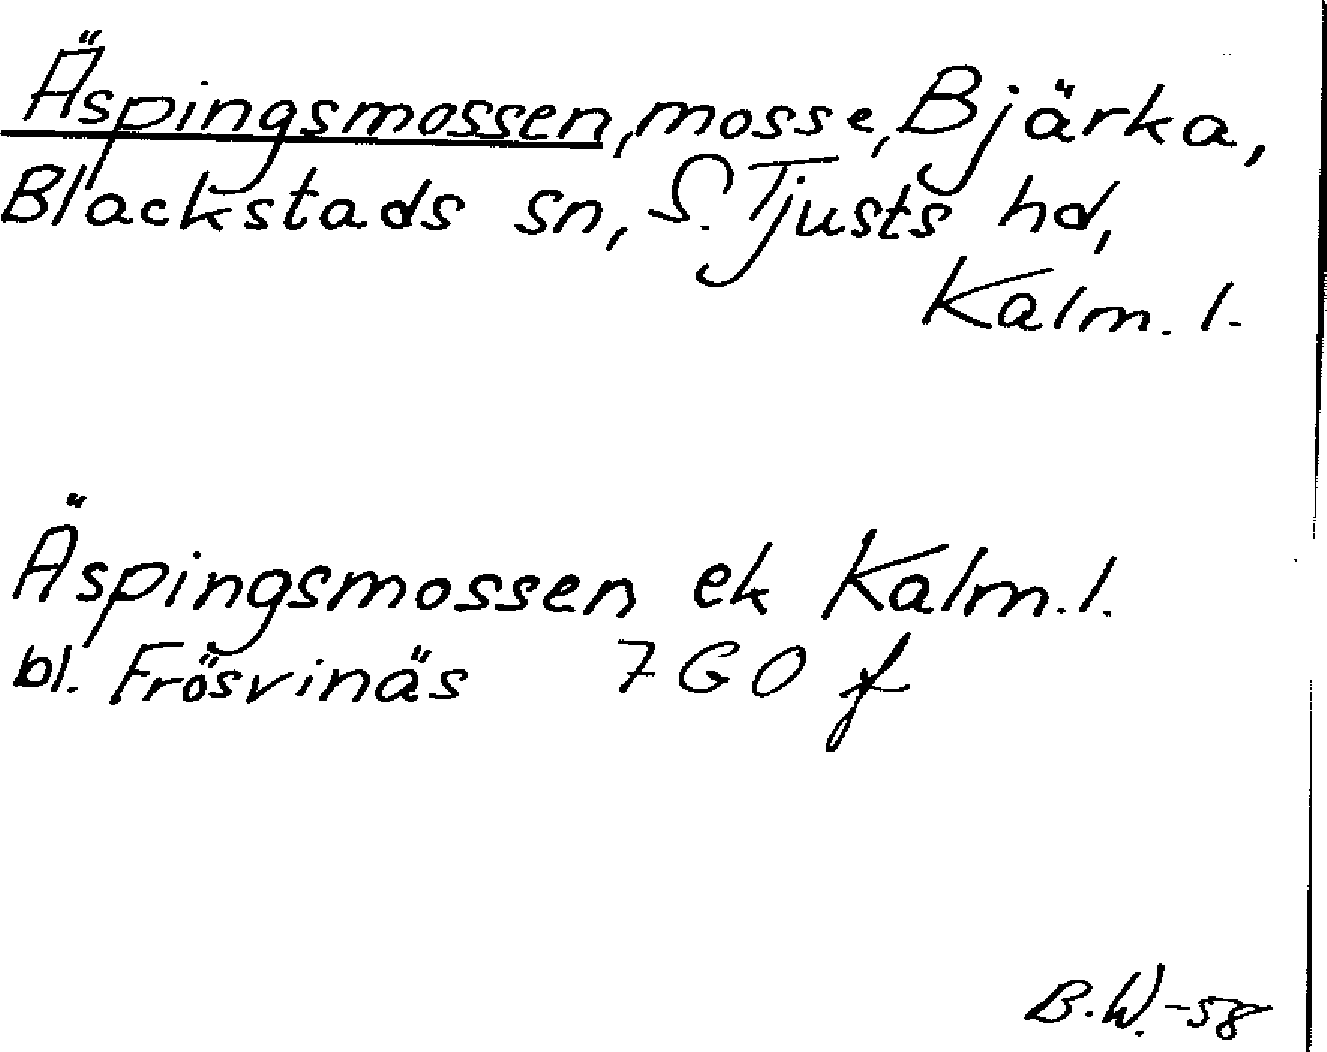 Äspingsmossen, mosse, Bjärka,
Blackstads sn, S. Tjusts hd,
Kalm. l.
Äspingsmossen ek Kalm. l.
bl. Frösvinäs 7 G O f
B. W. -58